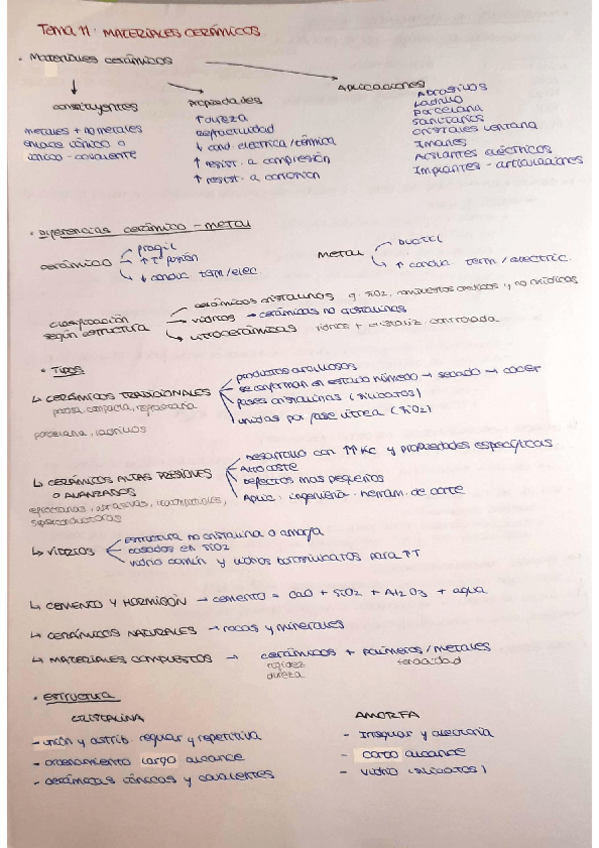 Tema 11: MATERIALES CERÁMICOS
· Materiales cerámicos
constituyentes
metales + no metales
enlace iónico o
iónico-covalente
Propiedades
↑ dureza
Refractariedad
↓ cond. eléctrica/térmica
↑ resist. a compresión
↑ resist. a corrosión
Aplicaciones
Abrasivos
Ladrillo
Porcelana
Sanitarios
Cristales ventana
Imanes
Aislantes eléctricos
Implantes - articulaciones
· Diferencias cerámico - metal
cerámico
fragil
↑ Tª fusión
↓ conduc term/elec.
Metal
Ductil
↑ conduc term/electric.
clasificación según estructura
cerámicos cristalinos ej. SiO2, compuestos iónicos y no nítricos
vidrios → cerámicos no cristalinos
vitrocerámicas vidrios + cristaliz. controlada
· TIPOS
↳ CERÁMICOS TRADICIONALES
porosa, compacta, refractaria
porcelana, ladrillos
productos arcillosos
se conforman en estado húmedo → secado → cocer
fases cristalinas (silicatos)
unidas por fase vítrea (SiO2)
↳ CERÁMICOS ALTAS PRESIONES
O AVANZADOS
refractarias, abrasivas, biocompatibles,
superconductoras
Desarrollo con ↑↑ Kc y propiedades específicas
Alto coste
Defectos más pequeños
Aplic: ingeniería. herram. de corte
↳ VIDRIOS
estructura no cristalina o amorfa
basados en SiO2
vidrio común y vidrios borosilicatos para ↑T
↳ CEMENTO Y HORMIGÓN → cemento = CaO + SiO2 + Al2O3 + agua
↳ CERÁMICOS NATURALES → rocas y minerales
↳ MATERIALES COMPUESTOS → cerámicos + polímeros/metales
rigidez tenacidad
dureza
· Estructura
CRISTALINA
- unión y distrib. regular y repetitiva
- ordenamiento largo alcance
- cerámicas iónicas y covalentes
AMORFA
- Irregular y aleatoria
- corto alcance
- vidrio (silicatos)